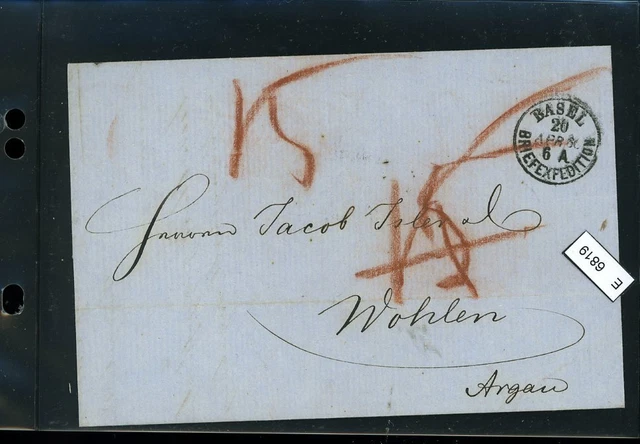 15
BASEL
20
APR
6 A
BRIEFEXPEDITION
Herren Jacob Isler
15
Wohlen
Argau
E 6819